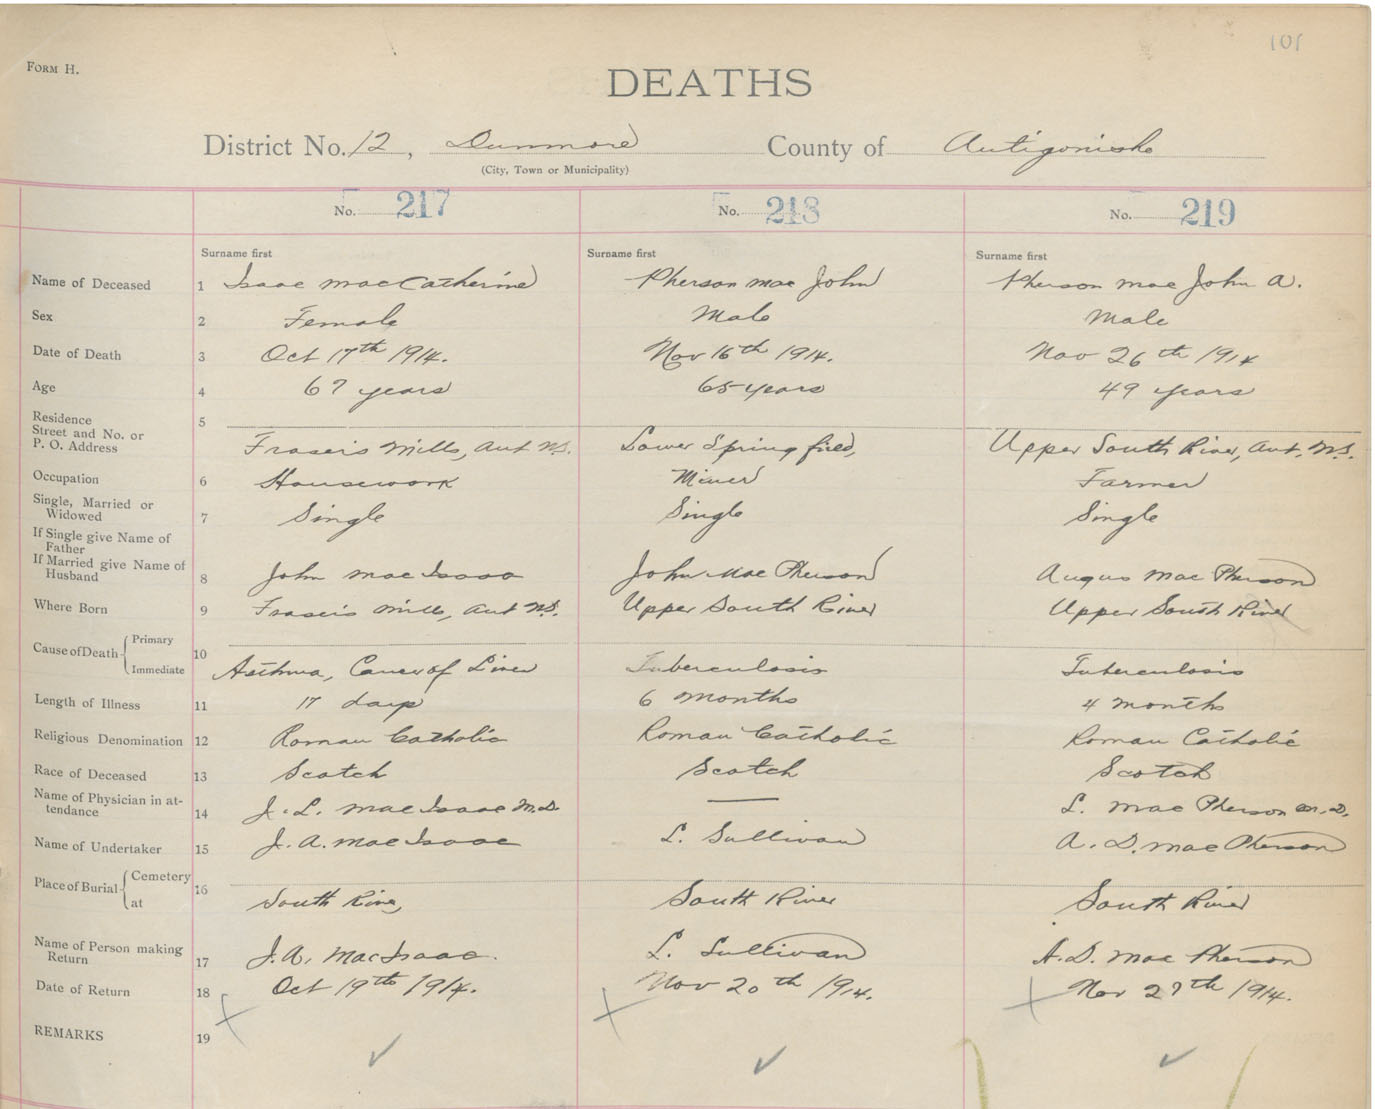 101
FORM H.
DEATHS
District No. 12, Dunmore County of Antigonishe
(City, Town or Municipality)
No. 217 No. 218 No. 219
Surname first Surname first Surname first
Name of Deceased 1 Isaac mac Catherine Pherson mac John Pherson mac John A.
Sex 2 Female Male Male
Date of Death 3 Oct 17th 1914. Nov 16th 1914. Nov 26th 1914
Age 4 67 years 65 years 49 years
Residence
Street and No. or 5
P. O. Address Frasers Mills, Ant N.S. Lower Springfield, Upper South River, Ant. N.S.
Occupation 6 Housework Miner Farmer
Single, Married or
Widowed 7 Single Single Single
If Single give Name of
Father
If Married give Name of
Husband 8 John mac Isaac John Mac Pherson Angus Mac Pherson
Where Born 9 Frasers Mills, Ant N.S. Upper South River Upper South River
Cause of Death Primary 10
Immediate Asthma, Cancer of Liver Tuberculosis Tuberculosis
Length of Illness 11 17 days 6 months 4 months
Religious Denomination 12 Roman Catholic Roman Catholic Roman Catholic
Race of Deceased 13 Scotch Scotch Scotch
Name of Physician in at-
tendance 14 J. L. Mac Isaac M.D. — L. Mac Pherson M.D.
Name of Undertaker 15 J. A. Mac Isaac L. Sullivan A. D. Mac Pherson
Place of Burial Cemetery 16
at South River, South River South River
Name of Person making
Return 17 J. A. MacIsaac. L. Sullivan A. D. Mac Pherson
Date of Return 18 Oct 19th 1914. Nov 20th 1914. Nov 27th 1914.
REMARKS 19